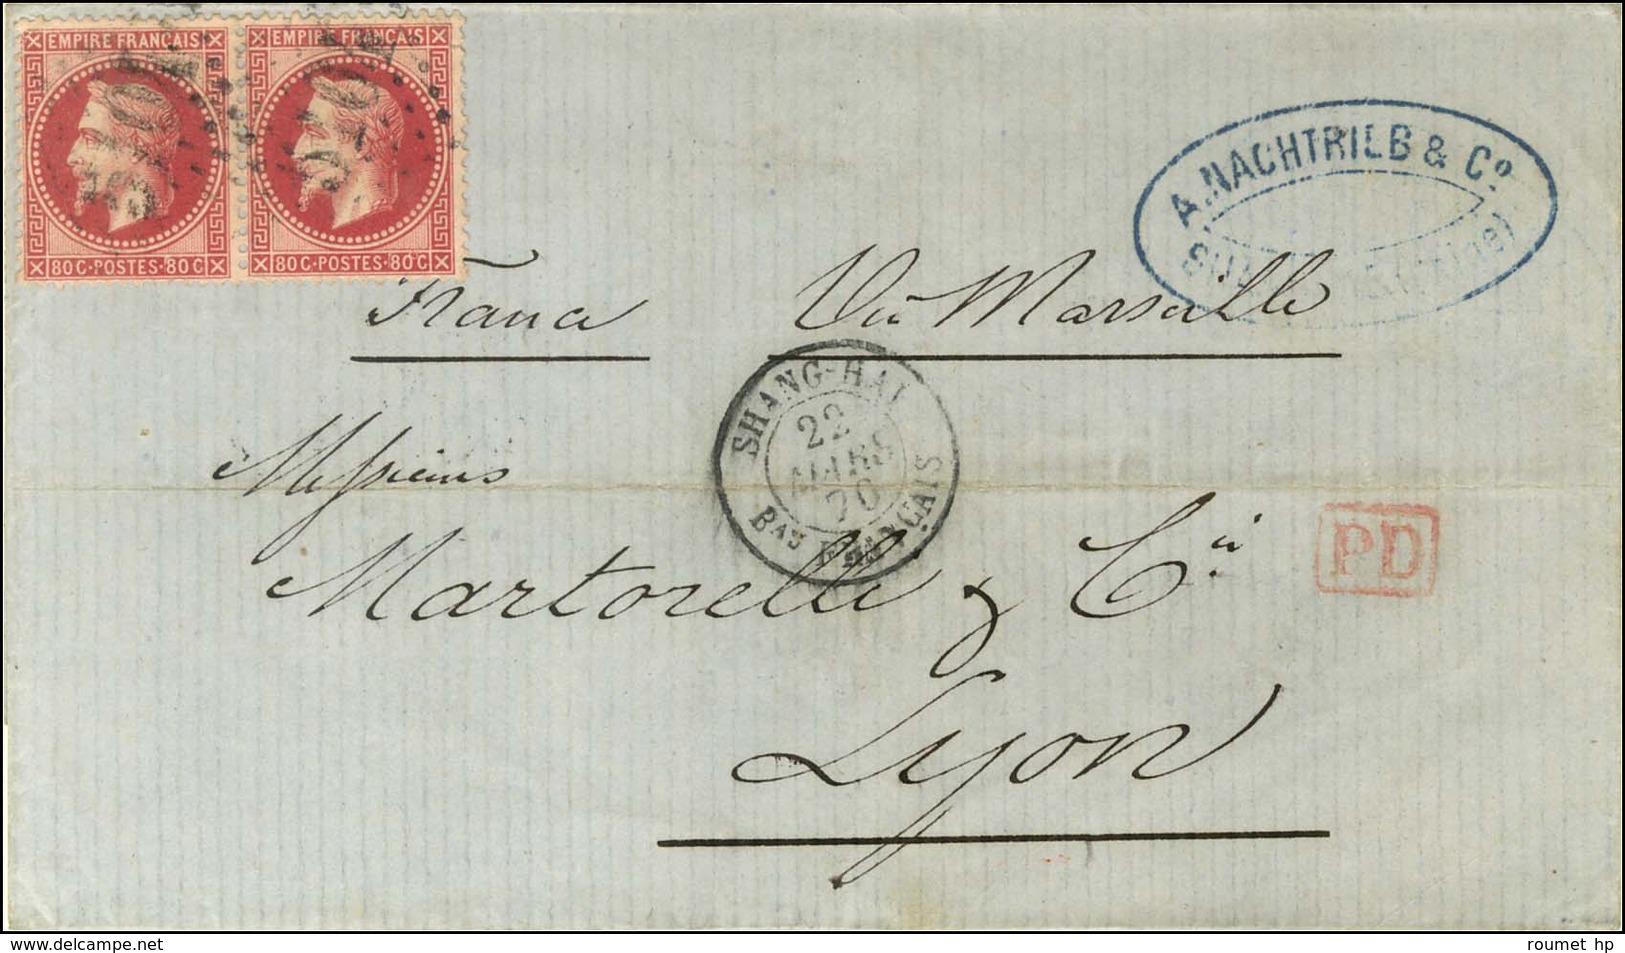 EMPIRE FRANÇAIS EMPIRE FRANÇAIS
80 C·POSTES·80 C 80 C·POSTES·80 C
A. NACHTRIEB & Co.
France Via Marseille
SHANG-HAI
22
MARS
70
BAU FRANÇAIS
Messieurs
Martorelli & Cie
PD
Lyon
www.delcampe.net
roumet hp